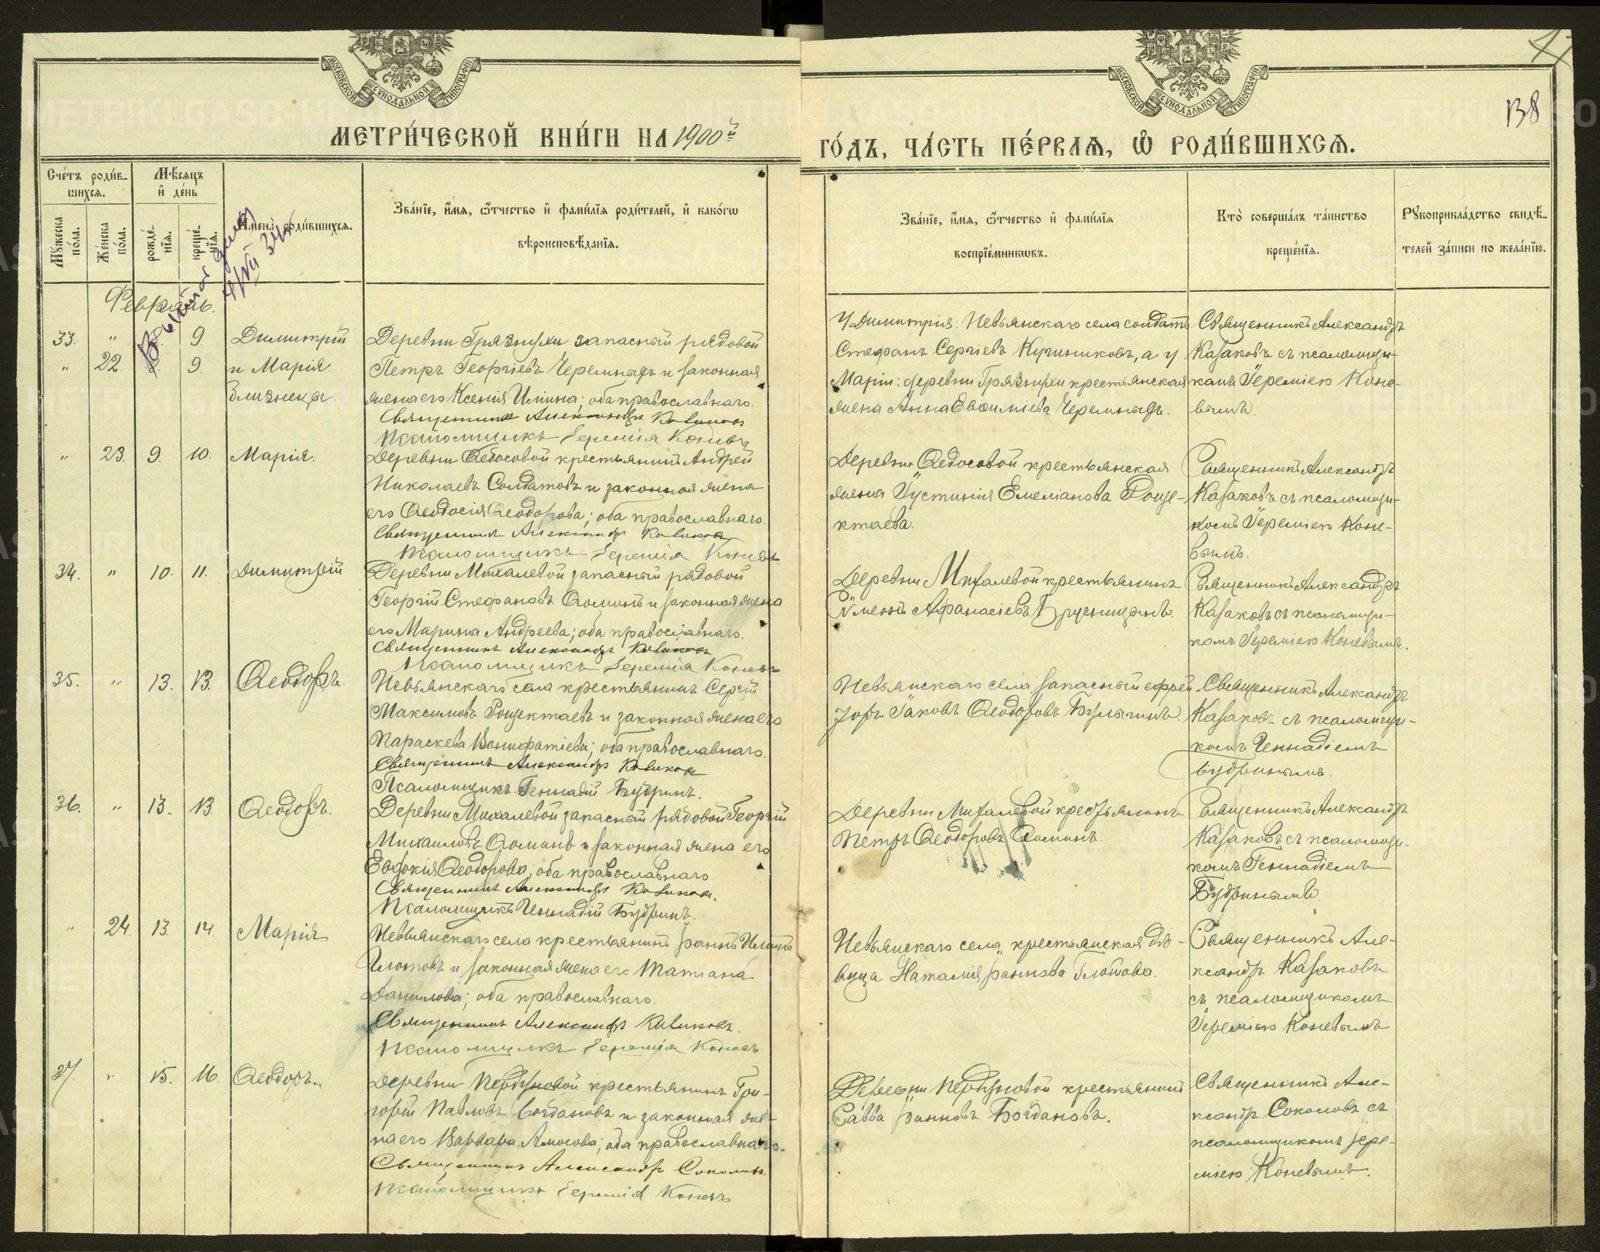 МОСКОВСКОЙ СѴНОДАЛЬНОЙ ТИПОГРАФІИ
МОСКОВСКОЙ СѴНОДАЛЬНОЙ ТИПОГРАФІИ
138
МЕТРИ́ЧЕСКОЙ КНИ́ГИ НА 1900й
ГО́ДЪ, ЧА́СТЬ ПЕ́РВАѦ, Ѡ҆ РОДИ́ВШИХСѦ.
Сче́тъ роди́в-
шихсѧ.
Мѣ́сѧцъ
и҆ де́нь
Мꙋ́жеска по́ла.
Же́нска по́ла.
рожде́-нїѧ.
креще́-нїѧ.
И҆мена̀ роди́вшихсѧ.
Зва́нїе, и҆́мѧ, ѻ҆́тчество и҆ фами́лїѧ роди́телей, и҆ како́гѡ
вѣроисповѣ́данїѧ.
Зва́нїе, и҆́мѧ, ѻ҆́тчество и҆ фами́лїѧ
воспрїе́мникѡвъ.
Кто̀ соверша́лъ та́инство
креще́нїѧ.
Рꙋкоприкла́дство свидѣ́-
телей за́писи по жела́нїю.
4/VII 34
Февраль.
33. " 9 Димитрій
" 22 9 и Марія
близнецы.
Деревни Грязнухи запасный рядовой
Петръ Георгіевъ Черемныхъ и законная
жена его Ксенія Ильина; оба православнаго.
Священникъ Александръ Казаковъ
Псаломщикъ Іеремія Коневъ
У Димитрія: Невьянскаго села солдатъ
Стефанъ Сергіевъ Кучиниковъ, а у
Маріи: деревни Грязнухи крестьянская
жена Анна Евѳиміева Черемныхъ.
Священникъ Александръ
Казаковъ съ псаломщи-
комъ Іереміею Коне-
вымъ.
" 23. 9. 10. Марія.
Деревни Ѳедосовой крестьянинъ Андрей
Николаевъ Солдатовъ и законная жена
его Ѳеодосія Ѳеодорова; оба православнаго.
Священникъ Александръ Казаковъ
Псаломщикъ Іеремія Коневъ
Деревни Ѳедосовой крестьянская
жена Іустинія Емеліанова Роще-
ктаева.
Священникъ Александръ
Казаковъ съ псаломщи-
комъ Іереміею Коне-
вымъ.
34. " 10. 11. Димитрій
Деревни Михалевой запасный рядовой
Георгій Стефановъ Ѳоминъ и законная жена
его Марина Андреева; оба православнаго.
Священникъ Александръ Казаковъ
Псаломщикъ Іеремія Коневъ
Деревни Михалевой крестьянинъ
Аѳанасіевъ Брусницынъ.
Священникъ Александръ
Казаковъ съ псаломщи-
комъ Іереміею Коневымъ.
35. " 13. 13. Ѳеодоръ.
Невьянскаго села крестьянинъ Сергій
Максимовъ Рощектаевъ и законная жена его
Параскева Вонифатіева; оба православнаго.
Священникъ Александръ Казаковъ
Псаломщикъ Геннадій Будринъ.
Невьянскаго села запасный ефрей-
торъ Іаковъ Ѳеодоровъ Булыгинъ.
Священникъ Александръ
Казаковъ съ псаломщи-
комъ Геннадіемъ
Будринымъ.
36. " 13. 13 Ѳеодоръ.
Деревни Михалевой запасный рядовой Георгій
Михаиловъ Ѳоминъ и законная жена его
Евдокія Ѳеодорова; оба православнаго.
Священникъ Александръ Казаковъ.
Псаломщикъ Геннадій Будринъ.
Деревни Михалевой крестьянинъ
Петръ Ѳеодоровъ Ѳоминъ.
Священникъ Александръ
Казаковъ съ псаломщи-
комъ Геннадіемъ
Будринымъ.
" 24. 13. 14 Марія.
Невьянскаго села крестьянинъ Іоаннъ
и законная жена его Татіана
Данилова; оба православнаго.
Священникъ Александръ Казаковъ.
Псаломщикъ Іеремія Коневъ
Невьянскаго села, крестьянская дѣ-
вица Наталія Іоаннова Глотова.
Священникъ Але-
ксандръ Казаковъ
съ псаломщикомъ
Іереміею Коневымъ
37. " 15. 16. Ѳеодоръ.
Деревни Первуновой крестьянинъ Гри-
горій Павловъ Богдановъ и законная же-
на его Варвара Амосова; оба православнаго.
Священникъ Александръ Соколовъ.
Псаломщикъ Іеремія Коневъ
Деревни Первуновой крестьянинъ
Савва Іоанновъ Богдановъ.
Священникъ Але-
ксандръ Соколовъ съ
псаломщикомъ Іере-
міею Коневымъ.